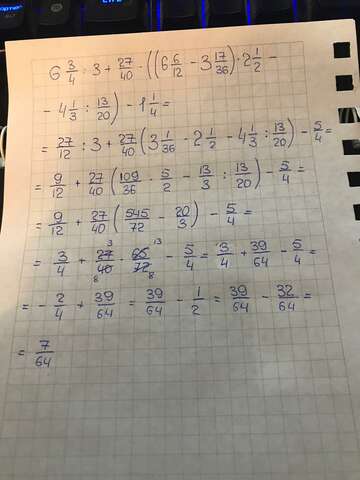 6 3/4 : 3 + 27/40 · ((6 6/12 - 3 17/36) · 2 1/2 -
- 4 1/3 : 13/20) - 1 1/4 =
= 27/12 : 3 + 27/40 (3 1/36 · 2 1/2 - 4 1/3 : 13/20) - 5/4 =
= 9/12 + 27/40 (109/36 · 5/2 - 13/3 : 13/20) - 5/4 =
= 9/12 + 27/40 (545/72 - 20/3) - 5/4 =
= 3/4 + 27 3/40 8 · 65 13/72 8 - 5/4 = 3/4 + 39/64 - 5/4 =
= - 2/4 + 39/64 = 39/64 - 1/2 = 39/64 - 32/64 =
= 7/64